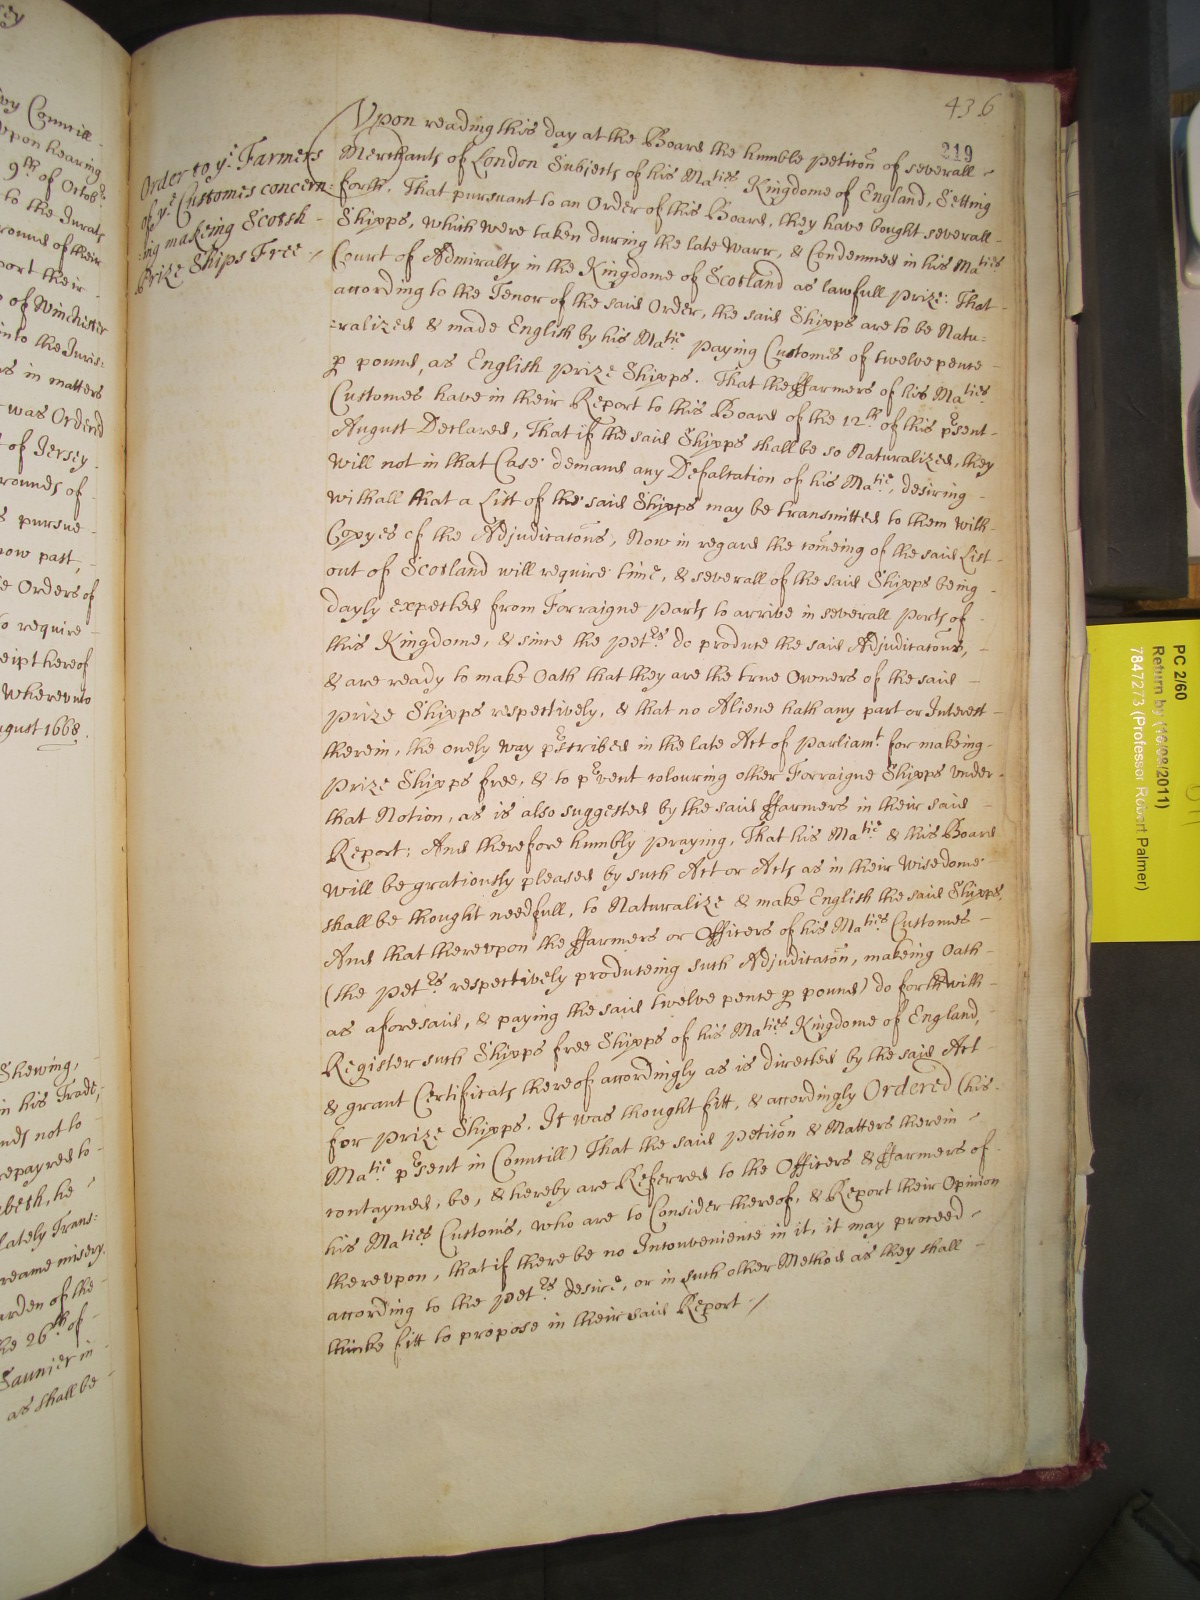 vy Councill
Vpon hearing
9th of Octobr
to the Jurats
port their
of Winchester
into the Juris:
as in matters
was Ordered
t of Jersey.
rounds of
s pursue
now past,
e Orders of
o require
eipt hereof
Wherevnto
ugust 1668.
Shewing,
in his Trade,
nds not to
repayred to
he
lately Trans:
reame misery.
arden of the
he 26th of
Saunier in
as shall be
436
219
Order to ye Farmers
of ye Customes concern:
:ing makeing Scotsh
Prize Ships Free
Vpon reading this day at the Board the humble petitõn of severall
Merchants of London Subjects of his Maties Kingdome of England, Setting
forth, That pursuant to an Order of this Board, they have bought severall
Shipps, which were taken during the late Warr, & Condemned in his Maties
Court of Admiralty in the Kingdome of Scotland as lawfull prize: That
according to the Tenor of the said Order, the said Shipps are to be Natu:
:ralized & made English by his Matie paying Customes of twelve pence
p pound, as English prize Shipps. That the ffarmers of his Maties
Customes have in their Report to this Board of the 12th of this prsent
August Declared, That if the said Shipps shall be so Naturalized, they
will not in that Case demand any Defaltation of his Matie, desiring
withall that a List of the said Shipps may be transmitted to them with
Copyes of the Adjudicatõns, Now in regard the cõmeing of the said List
out of Scotland will require time, & severall of the said Shipps being
dayly expected from Forraigne parts to arrive in severall ports of
this Kingdome, & since the petrs do produce the said Adjudicatõns,
& are ready to make Oath that they are the true Owners of the said
prize Shipps respectively, & that no Aliene hath any part or Interest
therein, the onely way prscribed in the late Act of Parliamt for makeing
Prize Shipps free, & to prvent colouring other Forraigne Shipps vnder
that Notion, as is also suggested by the said ffarmers in their said
Report; And therefore humbly praying, That his Matie & this Board
will be gratiously pleased by such Act or Acts as in their Wisedome
shall be thought needfull, to Naturalize & make English the said Shipps,
And that therevpon the ffarmers or Officers of his Maties Customes
(the petrs respectively produceing such Adjudicatõn, makeing Oath
as aforesaid, & paying the said twelve pence p pound) do forthwith
Register such Shipps free Shipps of his Maties Kingdome of England,
& grant Certificats thereof accordingly as is directed by the said Act
for prize Shipps. It was thought fitt, & accordingly Ordered (his
Matie prsent in Councill) That the said petitõn & Matters therein
contayned, be, & hereby are Referred to the Officers & ffarmers of
his Maties Customs, who are to Consider thereof, & Report their Opinion
therevpon, that if there be no Inconvenience in it, it may proceed
according to the petrs desire, or in such other Method as they shall
thinke fitt to propose in their said Report
PC 2/60
Return by (16/09/2011)
7847273 (Professor Robert Palmer)